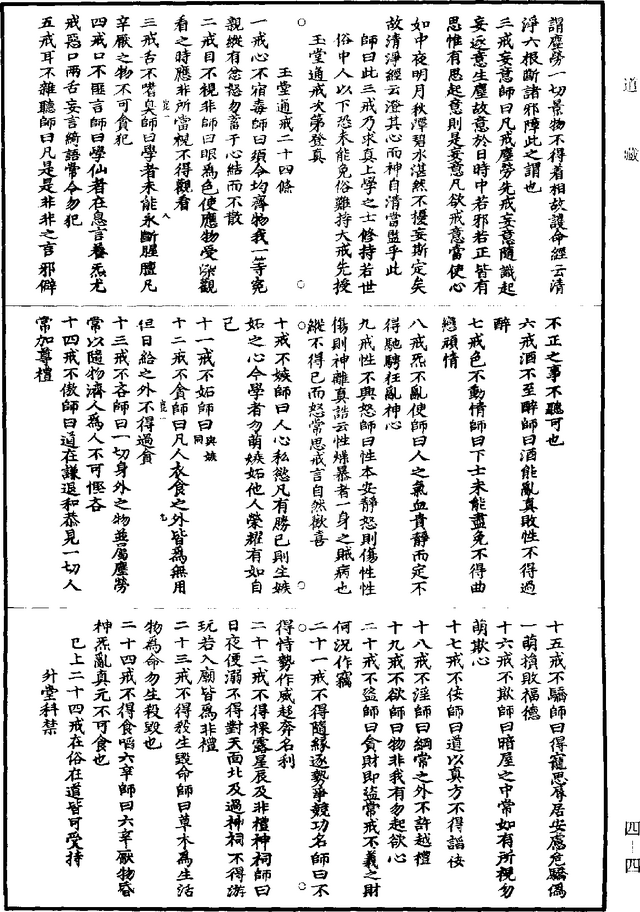 道藏
謂塵勞一切景物不得着相故護命經云清
淨六根斷諸邪障此之謂也
三戒妄意師曰凡戒塵勞先戒妄意隨識起
妄返意生塵故意於日時中若邪若正皆有
思惟有思起意則是妄意凡欲戒意當使心
如中夜明月秋潭碧水湛然不擾妄斯定矣
故清淨經云澄其心而神自清當監乎此
師曰此三戒乃求真上學之士修持若世
俗中人以下恐未能免俗難持大戒先授
玉堂通戒次第登真
玉堂通戒二十四條
一戒心不宿毒師曰須令均齊物我一等冤
親縱有忿諮勿蓄于心結而不散
二戒目不視非師曰眼為色使應物受染觀
看之時應非所當視不得觀看
三戒舌不嗜臭師曰學者未能永斷腥膻凡
辛厭之物不可貪犯
四戒口不匪言師曰學仙者在息言養炁尤
戒惡口兩舌妄言綺語常令勿犯
五戒耳不雜聽師曰凡是是非非之言邪僻
不正之事不聽可也
六戒酒不至醉師曰酒能亂真敗性不得過
醉
七戒色不動情師曰下士未能盡免不得曲
戀頑情
八戒炁不亂使師曰人之氣血貴靜而定不
得馳騁狂亂神心
九戒性不興怒師曰性本安靜怒則傷性性
傷則神離真誥云性燥暴者一身之賊病也
縱不得已而怒常思戒言自然歡喜
十戒不嫉師曰人心私慾凡有勝已則生嫉
妬之心今學者勿萌嫉妬他人榮耀有如自
己
十一戒不妬師曰與嫉同
十二戒不貪師曰凡人衣食之外皆為無用
但日給之外不得過貪
十三戒不吝師曰一切身外之物並屬塵勞
常以隨物濟人為人不可慳吝
十四戒不傲師曰道在謙退和恭見一切人
常加尊禮
十五戒不驕師曰得寵思辱居安慮危驕傷
一萌損敗福德
十六戒不欺師曰暗屋之中常如有所視勿
萌欺心
十七戒不佞師曰道以真方不得諂佞
十八戒不淫師曰綱常之外不許越禮
十九戒不欲師曰物非我有勿起欲心
二十戒不盜師曰貪財即盜常戒不義之財
何況作竊
二十一戒不得隨緣逐勢爭競功名師曰不
得恃勢作威趍奔名利
二十二戒不得裸露星辰及非禮神祠師曰
日夜便溺不得對天面北及過神祠不得游
玩若入廟皆為非禮
二十三戒不得殺生毀命師曰草木為生活
物為命勿生殺毀也
二十四戒不得食啗六辛師曰六辛厭物昏
神炁亂真元不可食也
已上二十四戒在俗在道皆可受持
升堂科禁
四-四